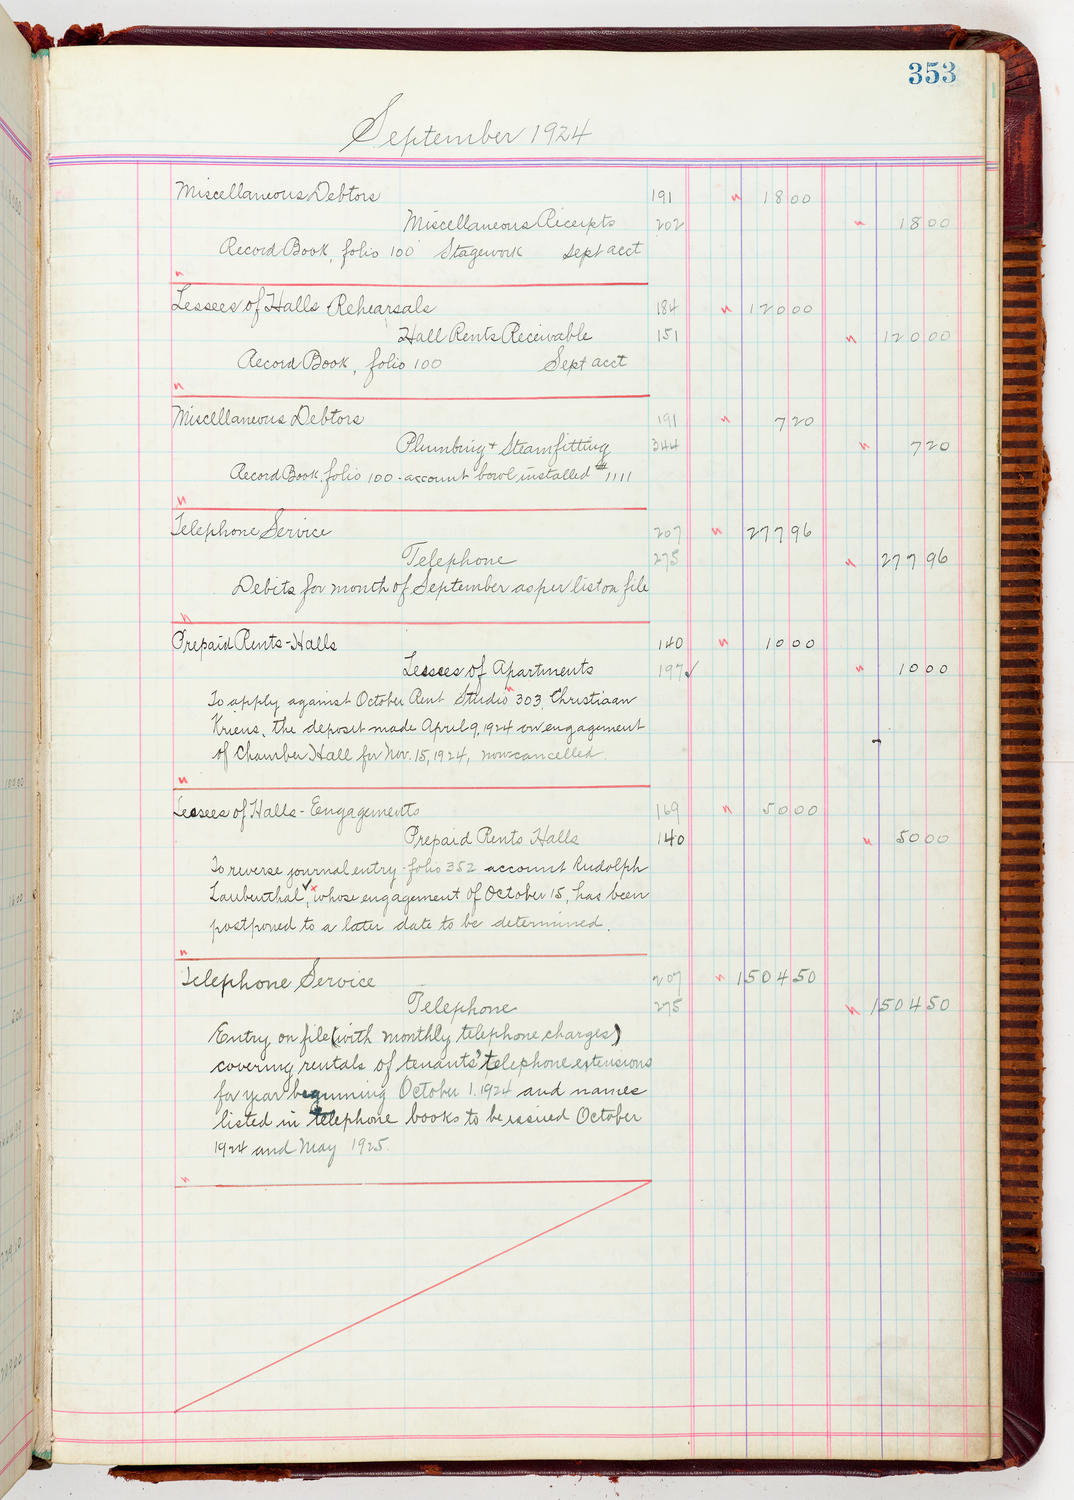 353
September 1924
Miscellaneous Debtors 191 1800
Miscellaneous Receipts 202 1800
Record Book, folio 100 Stagework Sept acct
Lessees of Halls Rehearsals 184 12000
Hall Rents Receivable 151 12000
Record Book, folio 100 Sept acct
Miscellaneous Debtors 191 720
Plumbing + Steamfitting 344 720
Record Book, folio 100 - account bowl installed #1111
Telephone Service 207 27796
Telephone 275 27796
Debits for month of September as per list on file
Prepaid Rents - Halls 140 1000
Lessees of Apartments 197✓ 1000
To apply against October Rent Studio 303, Christiaan
Kriens, the deposit made April 9, 1924 on engagement
of Chamber Hall for Nov. 15, 1924, now cancelled.
Lessees of Halls - Engagements 169 5000
Prepaid Rents Halls 140 5000
To reverse journal entry - folio 352 account Rudolph
Laubenthal, whose engagement of October 15, has been
postponed to a later date to be determined.
Telephone Service 207 150450
Telephone 275 150450
Entry on file (with monthly telephone charges)
covering rentals of tenants' telephone extensions
for year beginning October 1, 1924 and names
listed in telephone books to be issued October
1924 and May 1925.